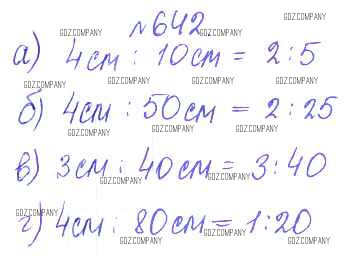 №642 GDZCOMPANY
GDZCOMPANY GDZCOMPANY
а) 4см : 10см = 2:5
GDZCOMPANY GDZCOMPANY GDZCOMPANY GDZCOMPANY
б) 4см : 50см = 2:25
GDZCOMPANY GDZCOMPANY GDZCOMPANY
в) 3см : 40см = 3:40
GDZCOMPANY GDZCOMPANY
GDZCOMPANY
г) 4см : 80см = 1:20
GDZCOMPANY GDZCOMPANY GDZCOMPANY
GDZCOMPANY